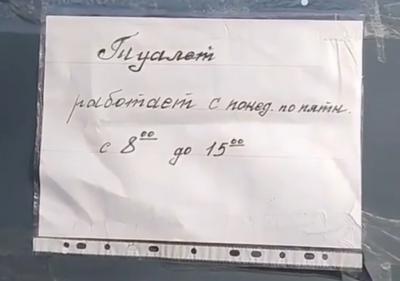 Туалет
работает с понед. по пятн.
с 8⁰⁰ до 15⁰⁰